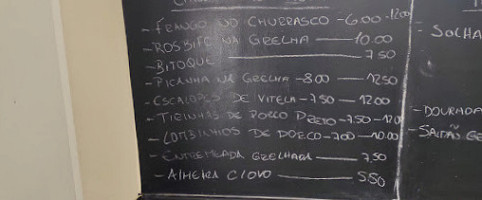 - FRANGO NO CHURRASCO - 6.00 - 12.00
- ROSBIFE NA GRELHA — 10.00
- BITOQUE — 7.50
- PICANHA NA GRELHA - 8.00 — 12.50
- ESCALOPES DE VITELA - 7.50 — 12.00
- TIRINHAS DE PORCO PRETO - 7.50 - 12.0
- LOMBINHOS DE PORCO - 7.00 — 10.00
- ENTREMEADA GRELHADA — 7.50
- ALHEIRA C/OVO — 5.50
- SOLHA
- DOURADA
- SALMÃO GR